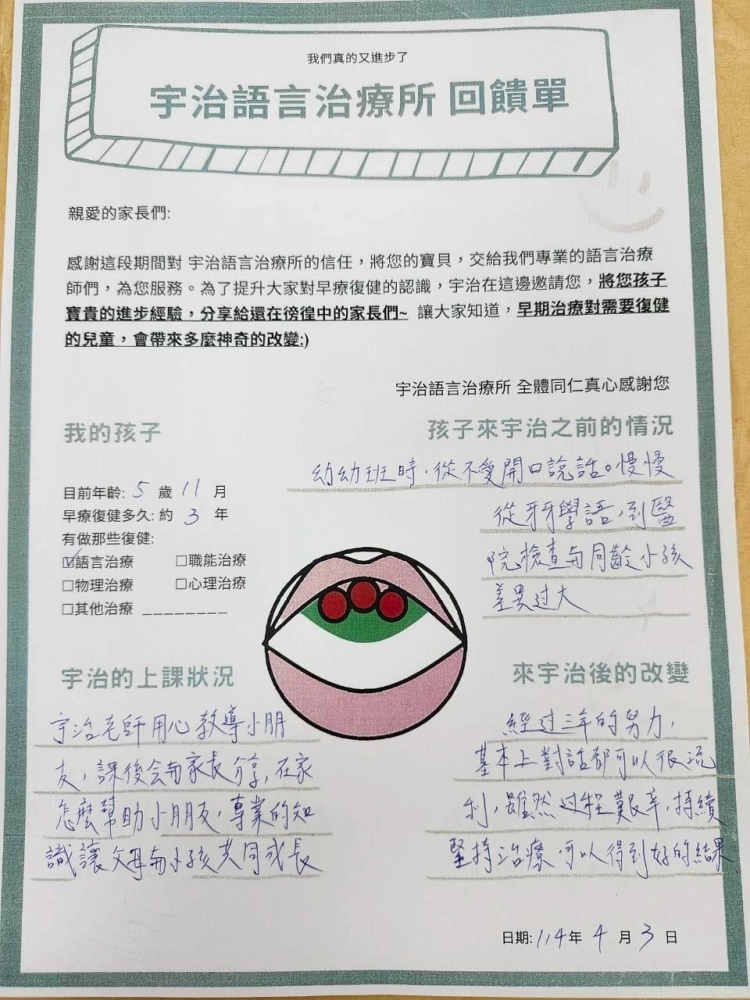 我們真的又進步了
宇治語言治療所 回饋單
親愛的家長們:
感謝這段期間對 宇治語言治療所的信任，將您的寶貝，交給我們專業的語言治療
師們，為您服務。為了提升大家對早療復健的認識，宇治在這邊邀請您，將您孩子
寶貴的進步經驗，分享給還在徬徨中的家長們~ 讓大家知道，早期治療對需要復健
的兒童，會帶來多麼神奇的改變:)
宇治語言治療所 全體同仁真心感謝您
我的孩子
目前年齡: 5 歲 11 月
早療復健多久: 約 3 年
有做那些復健:
☑語言治療 □職能治療
□物理治療 □心理治療
□其他治療 _________
孩子來宇治之前的情況
幼幼班時，從不愛開口說話。慢慢
從牙牙學語，到醫
院檢查与同齡小孩
差異过大
宇治的上課狀況
宇治老師用心教導小朋
友，課後会与家長分享，在家
怎麼幫助小朋友，專業的知
識讓父母与小孩共同成長
來宇治後的改變
經过三年的努力，
基本上對話都可以很流
利，雖然过程艱辛，持續
堅持治療可以得到好的結果
日期: 114年 4 月 3 日